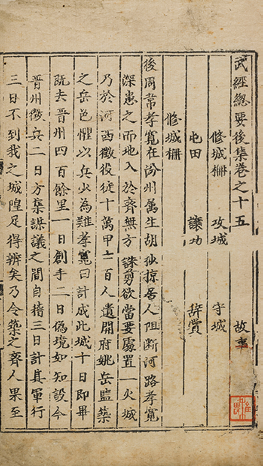 武經總要後集卷之十五 故事
修城柵 攻城 守城
屯田 讓功 辭賞
修城柵
後周韋孝寬在汾州屬生胡抄掠居人阻斷河路孝寬
深患之而地入於齊無方誅剪欲當要處置一大城
乃於河西徵役徒十萬甲士百人遣開府姚岳監築
之岳色懼以兵少為難孝寬曰計成此城十日即畢
既去晉州四百餘里一日創手二日偽境如知設令
晉州徵兵二日方集謀議之間自稽三日計其軍行
三日不到我之城隍足得辨矣乃令築之齊人果至